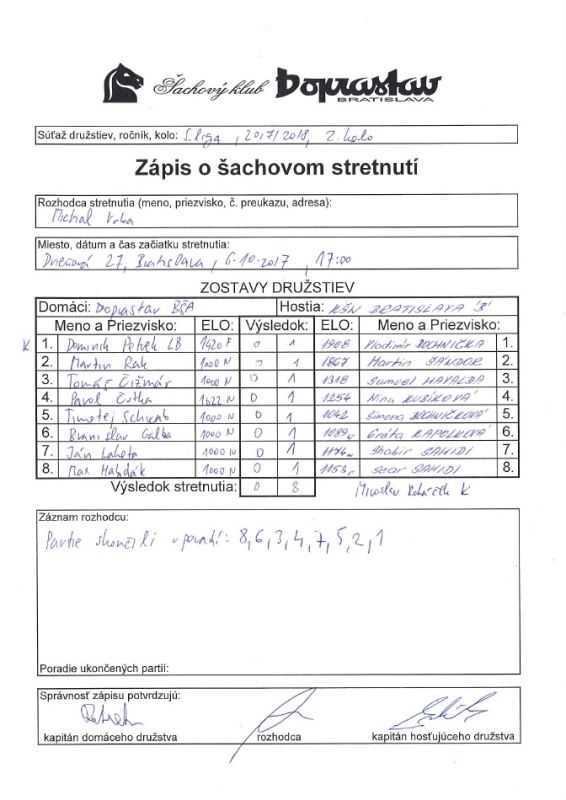 Šachový klub Doprastav
BRATISLAVA
Súťaž družstiev, ročník, kolo: 5. liga, 2017/2018, 2. kolo
Zápis o šachovom stretnutí
Rozhodca stretnutia (meno, priezvisko, č. preukazu, adresa):
Michal Vrba
Miesto, dátum a čas začiatku stretnutia:
Drieňová 27, Bratislava, 6.10.2017, 17:00
ZOSTAVY DRUŽSTIEV
Domáci: Doprastav BŠA Hostia: KŠN BRATISLAVA 'B'
Meno a Priezvisko: ELO: Výsledok: ELO: Meno a Priezvisko:
K 1. Dominik Petrek LB 1420 F 0 1 1908 Vladimír 1.
2. Martin Rak 1000 N 0 1 1867 Martin ŠÁNDOR 2.
3. Tomáš Čižmár 1000 N 0 1 1318 Samuel HAVALDA 3.
4. Pavol Čutka 1622 N 0 1 1254 Nina 4.
5. Timotej Schwab 1000 N 0 1 1042 Simona 5.
6. Branislav Galba 1000 N 0 1 Gréta KAPOLKOVÁ 6.
7. Ján Laheta 1000 N 0 1 SAHIDI 7.
8. Max Haľdák 1000 N 0 1 SAHIDI 8.
Výsledok stretnutia: 0 8 Miroslav K
Záznam rozhodcu:
Partie skončili v poradí: 8,6,3,4,7,5,2,1
Poradie ukončených partií:
Správnosť zápisu potvrdzujú:
kapitán domáceho družstva rozhodca kapitán hosťujúceho družstva